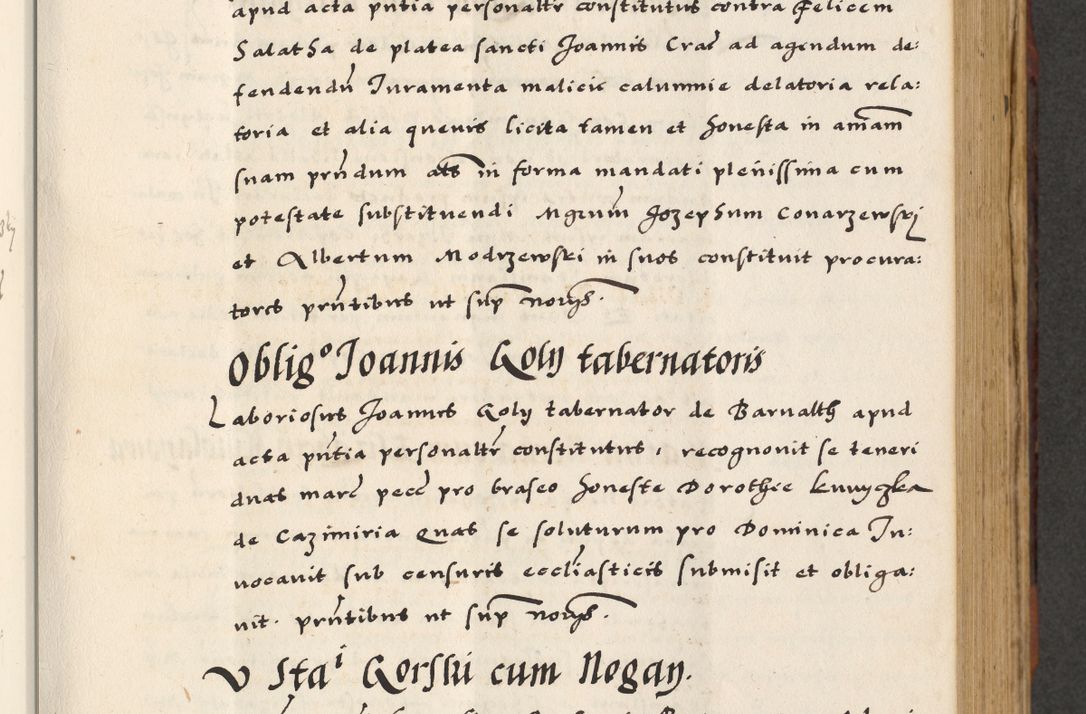 apud acta pñtia personaltr constitutus contra Felicem
Salatha de platea sancti Joannis Crac ad agendum de:
fendendũ Juramenta malicie calumnie delatoria rela:
toria et alia quevis licita tamen et honesta in amam
suam prñdum ats in forma mandati plenissima cum
potestate substituendi Mgrum Jozephum Conarzewskj
et Albertum Modrzewski in suos constituit procura:
tores prñtibus ut sup norijs.
Oblig° Joannis Goly tabernatoris
Laboriosus Joannes Goly tabernator de Barvalth apud
acta pñtia personaltr constitutus, recognovit se teneri
duas marc pecc pro braseo honeste Dorothee
de Cazimiria Quas se soluturum pro Dominica In:
vocavit sub censuris eccliasticis submisit et obliga:
vit. prñtibus ut sup norijs.
V Stai Gorskii cum Nogay.